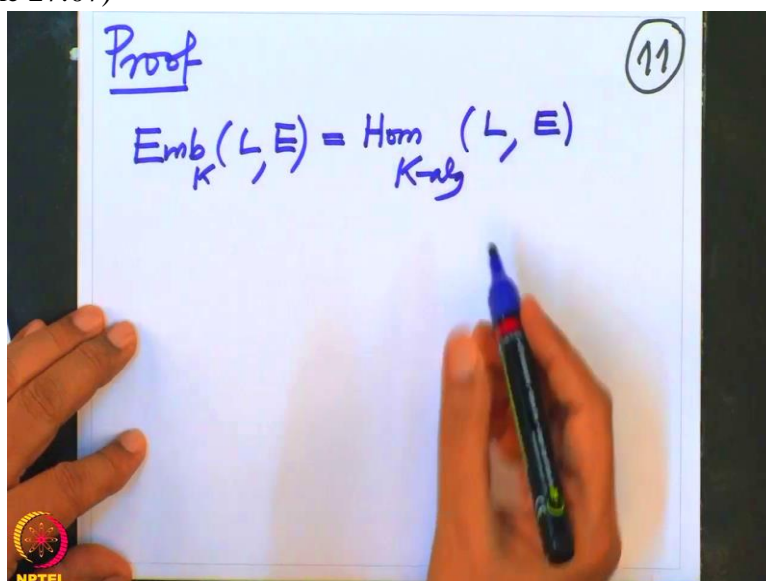 Proof
11
Emb_K(L, E) = Hom_{K-alg}(L, E)
NPTEL